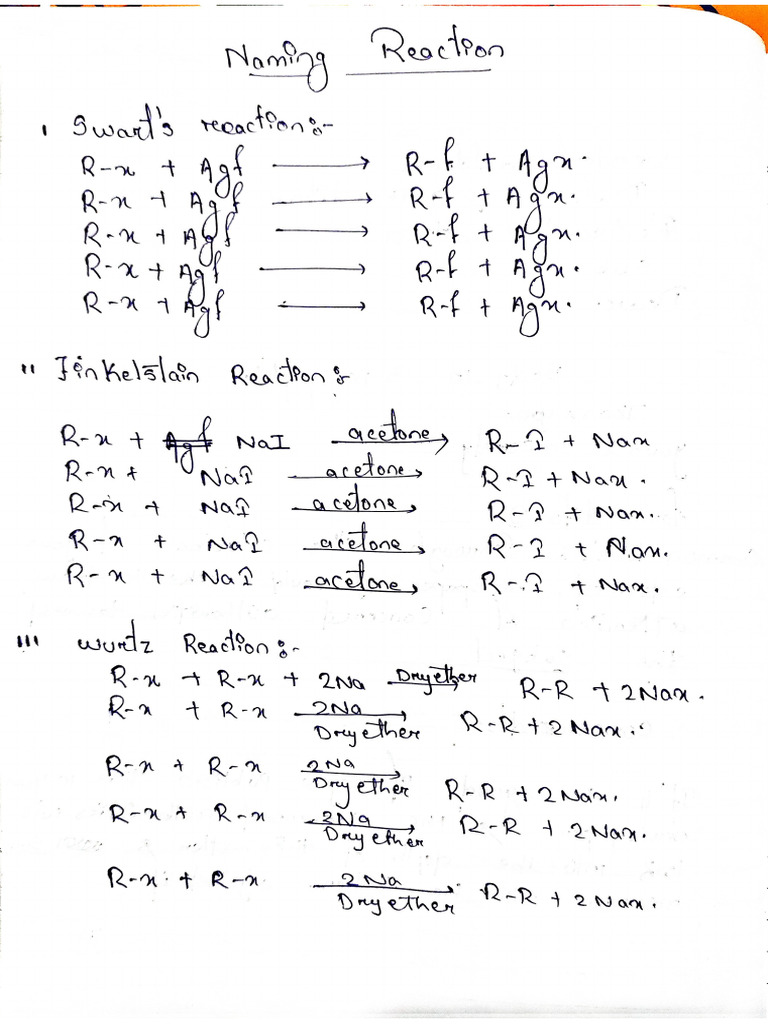 Naming Reaction
I Swart's reaction:-
R-x + Agf ⟶ R-f + Agx.
R-x + Agf ⟶ R-f + Agx.
R-x + Agf ⟶ R-f + Agx.
R-x + Agf ⟶ R-f + Agx.
R-x + Agf ⟶ R-f + Agx.
II Finkelstain Reaction:
R-x + Agf NaI acetone⟶ R-I + Nax
R-x + NaI acetone⟶ R-I + Nax.
R-x + NaI acetone⟶ R-I + Nax.
R-x + NaI acetone⟶ R-I + Nax.
R-x + NaI acetone⟶ R-I + Nax.
III wurtz Reaction:-
R-x + R-x + 2Na Dryether⟶ R-R + 2Nax.
R-x + R-x 2Na⟶ R-R + 2Nax.
Dryether
R-x + R-x 2Na⟶ R-R + 2Nax.
Dryether
R-x + R-x 2Na⟶ R-R + 2Nax.
Dryether
R-x + R-x 2Na⟶ R-R + 2Nax.
Dryether